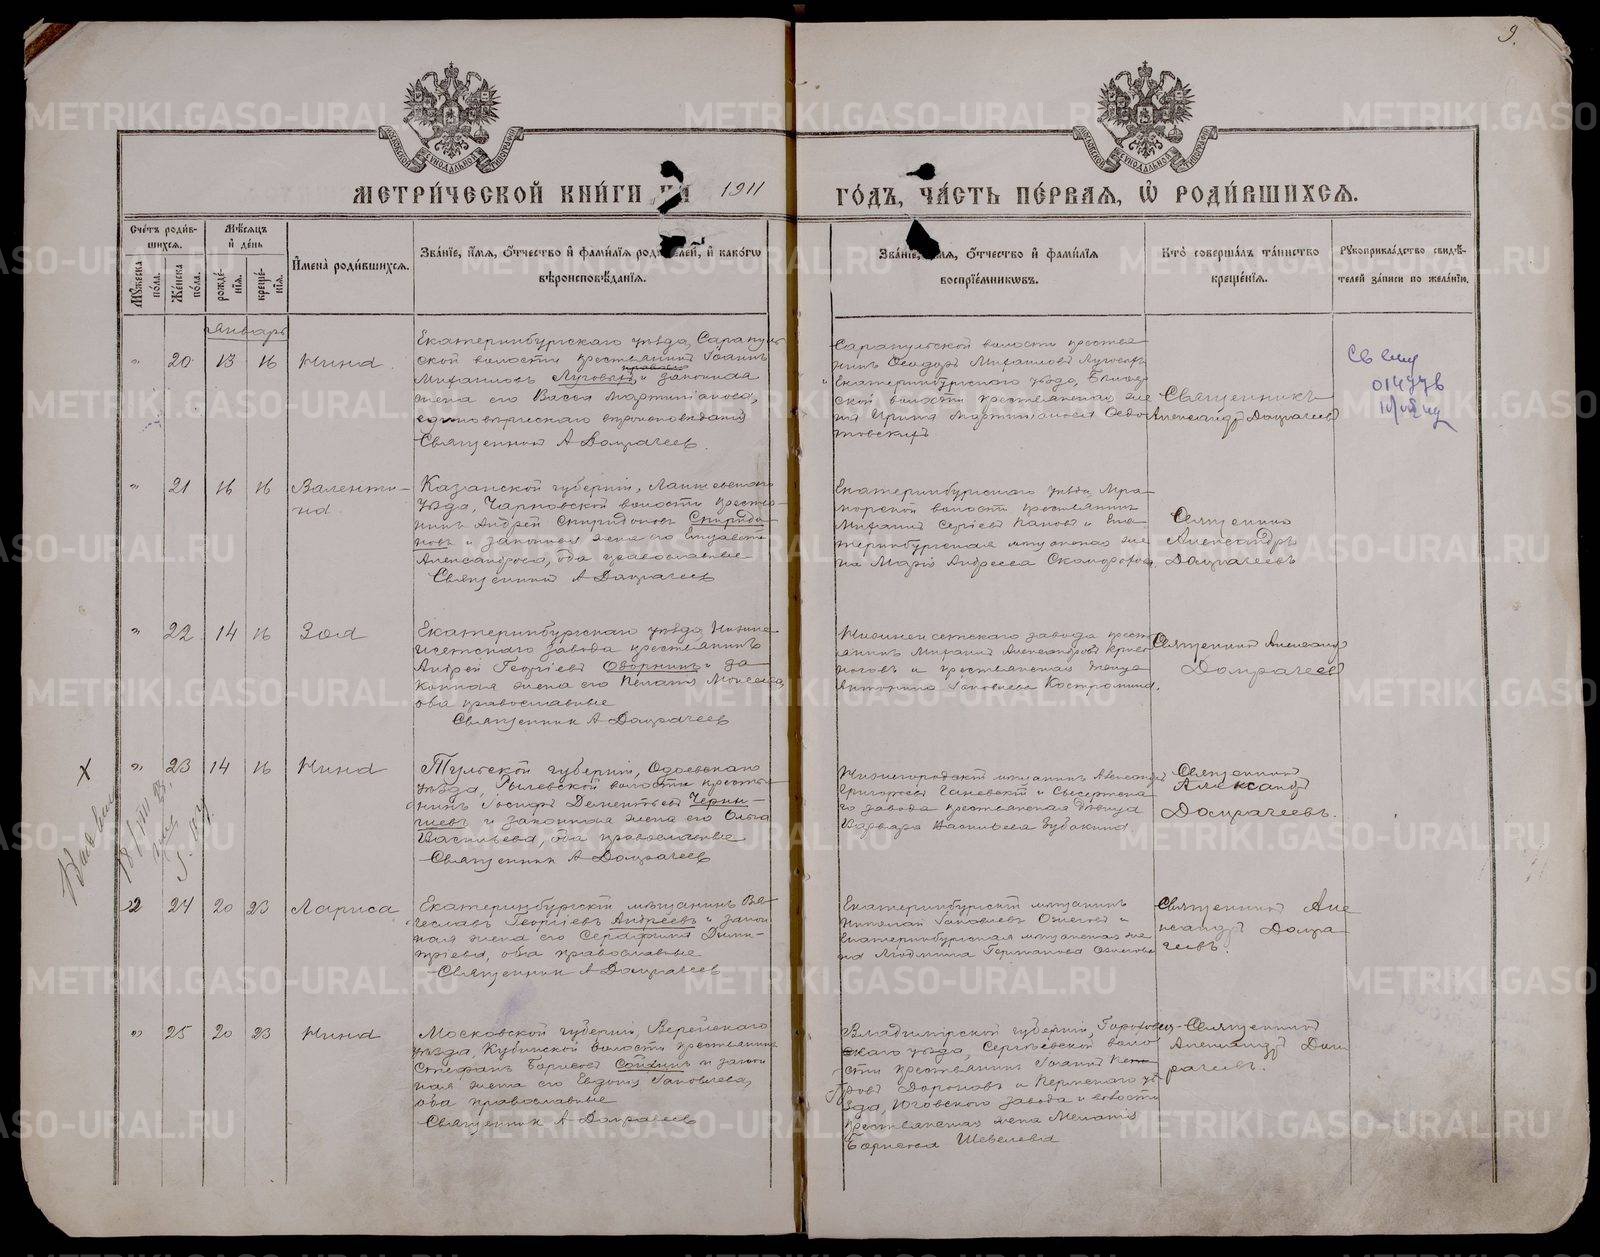 9.
МЕТРИ́ЧЕСКОЙ КНИ́ГИ НА 1911 ГО́ДЪ, ЧА́СТЬ ПЕ́РВАЯ, Ѽ РОДИ́ВШИХСЯ.
Сче́тъ роди́вшихся.
Му́жеска по́ла.
Же́нска по́ла.
Мѣ́сяцъ и́ де́нь
рожде́нїя.
креще́нїя.
И҆мена̀ роди́вшихся.
Зва́нїе, и҆́мя, ѻ҆́тчество и҆ фамѝлїя роди́телей, и҆ како́гѡ вѣроисповѣ́данїя.
Зва́нїе, и҆́мя, ѻ҆́тчество и҆ фамѝлїя воспрїе́мникѡвъ.
Кто̀ соверша́лъ та́инство креще́нїя.
Рꙋкоприкла́дство свидѣ́телей за́писи по жела́нїю.
Январь
" 20 13 16 Нина.
Екатеринбургскаго уѣзда, Сарапуль-
ской волости крестьянинъ Іоаннъ
Михаиловъ Луговыхъ и законная
жена его Васса Мартиніанова,
единовѣрческаго вѣроисповѣданія
Священникъ А Домрачеевъ.
Сарапульской волости крестья-
нинъ Ѳеодоръ Михаиловъ Луговыхъ
Екатеринбургскаго уѣзда,
ской волости крестьянская же-
на Ирина Мартиніанова
Священникъ
Александръ Домрачеевъ
" 21 16 16 Валенти-
на.
Казанской губерніи, Лаишевскаго
уѣзда, Чарновской волости крестья-
нинъ Андрей Спиридоновъ Спиридо-
новъ и законная жена его Елизавета
Александрова, оба православные
Священникъ А Домрачеевъ
Екатеринбургскаго уѣзда, Мра-
морской волости крестьянинъ
Михаилъ Сергіевъ Пановъ и Ека-
теринбургская мѣщанская же-
на Марія Андреева Скоморохова.
Священникъ
Александръ
Домрачеевъ
" 22 14 16 Зоя
Екатеринбургскаго уѣзда, Нижне-
исетскаго завода крестьянинъ
Андрей Георгіевъ Оворнинъ и за-
конная жена его Пелагія Моисеева,
оба православные
Священникъ А Домрачеевъ
Нижнеисетскаго завода кресть-
янинъ Михаилъ Александровъ
и крестьянская дѣвица
Антонина Іаковлева Костромина.
Священникъ Александръ
Домрачеевъ
" 23 14 16 Нина
Тульской губерніи, Одоевскаго
уѣзда, Рылевской волости крестья-
нинъ Іосифъ Дементьевъ Черны-
шевъ и законная жена его Ольга
Васильева, оба православные
Священникъ А Домрачеевъ
Нижегородскій мѣщанинъ Александръ
Григорьевъ Ганевскій и Сысертска-
го завода крестьянская дѣвица
Варвара Васильева Зубакина
Священникъ
Александръ
Домрачеевъ.
2 24 20 23 Лариса
Екатеринбургскій мѣщанинъ Вя-
чеславъ Георгіевъ Андреевъ и закон-
ная жена его Серафима Дими-
тріева, оба православные
Священникъ А Домрачеевъ
Екатеринбургскій мѣщанинъ
Николай Іаковлевъ Ожеговъ и
Екатеринбургская мѣщанская же-
на Людмила Германова Ожегова
Священникъ Але-
ксандръ Домра-
чеевъ.
" 25 20 23 Нина
Московской губерніи, Верейскаго
уѣзда, Кубинской волости крестьянинъ
Стефанъ Борисовъ Сонинъ и закон-
ная жена его Евдокія Іаковлева,
оба православные
Священникъ А Домрачеевъ
Владимірской губерніи, Гороховец-
каго уѣзда, Сергіевской воло-
сти крестьянинъ Іоаннъ Пет-
ровъ Дороновъ и Пермскаго уѣ-
зда, Юговскаго завода и волости
крестьянская жена Меланія
Борисова Шевелева
Священникъ
Александръ Дом-
рачеевъ.
METRIKI.GASO-URAL.RU